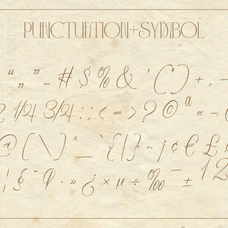 PUNCTUATION+SYMBOL
“ „ ” … # $ % & ‘ ( * ) + , –
1/4 3/4 : ; < – > ? © ª « –
@ ( \ ) ^ _ ` { | } ~ ¡ ¢ € £
¦ § ¶ · » ¿ × µ ÷ ‰ – ± 1 2